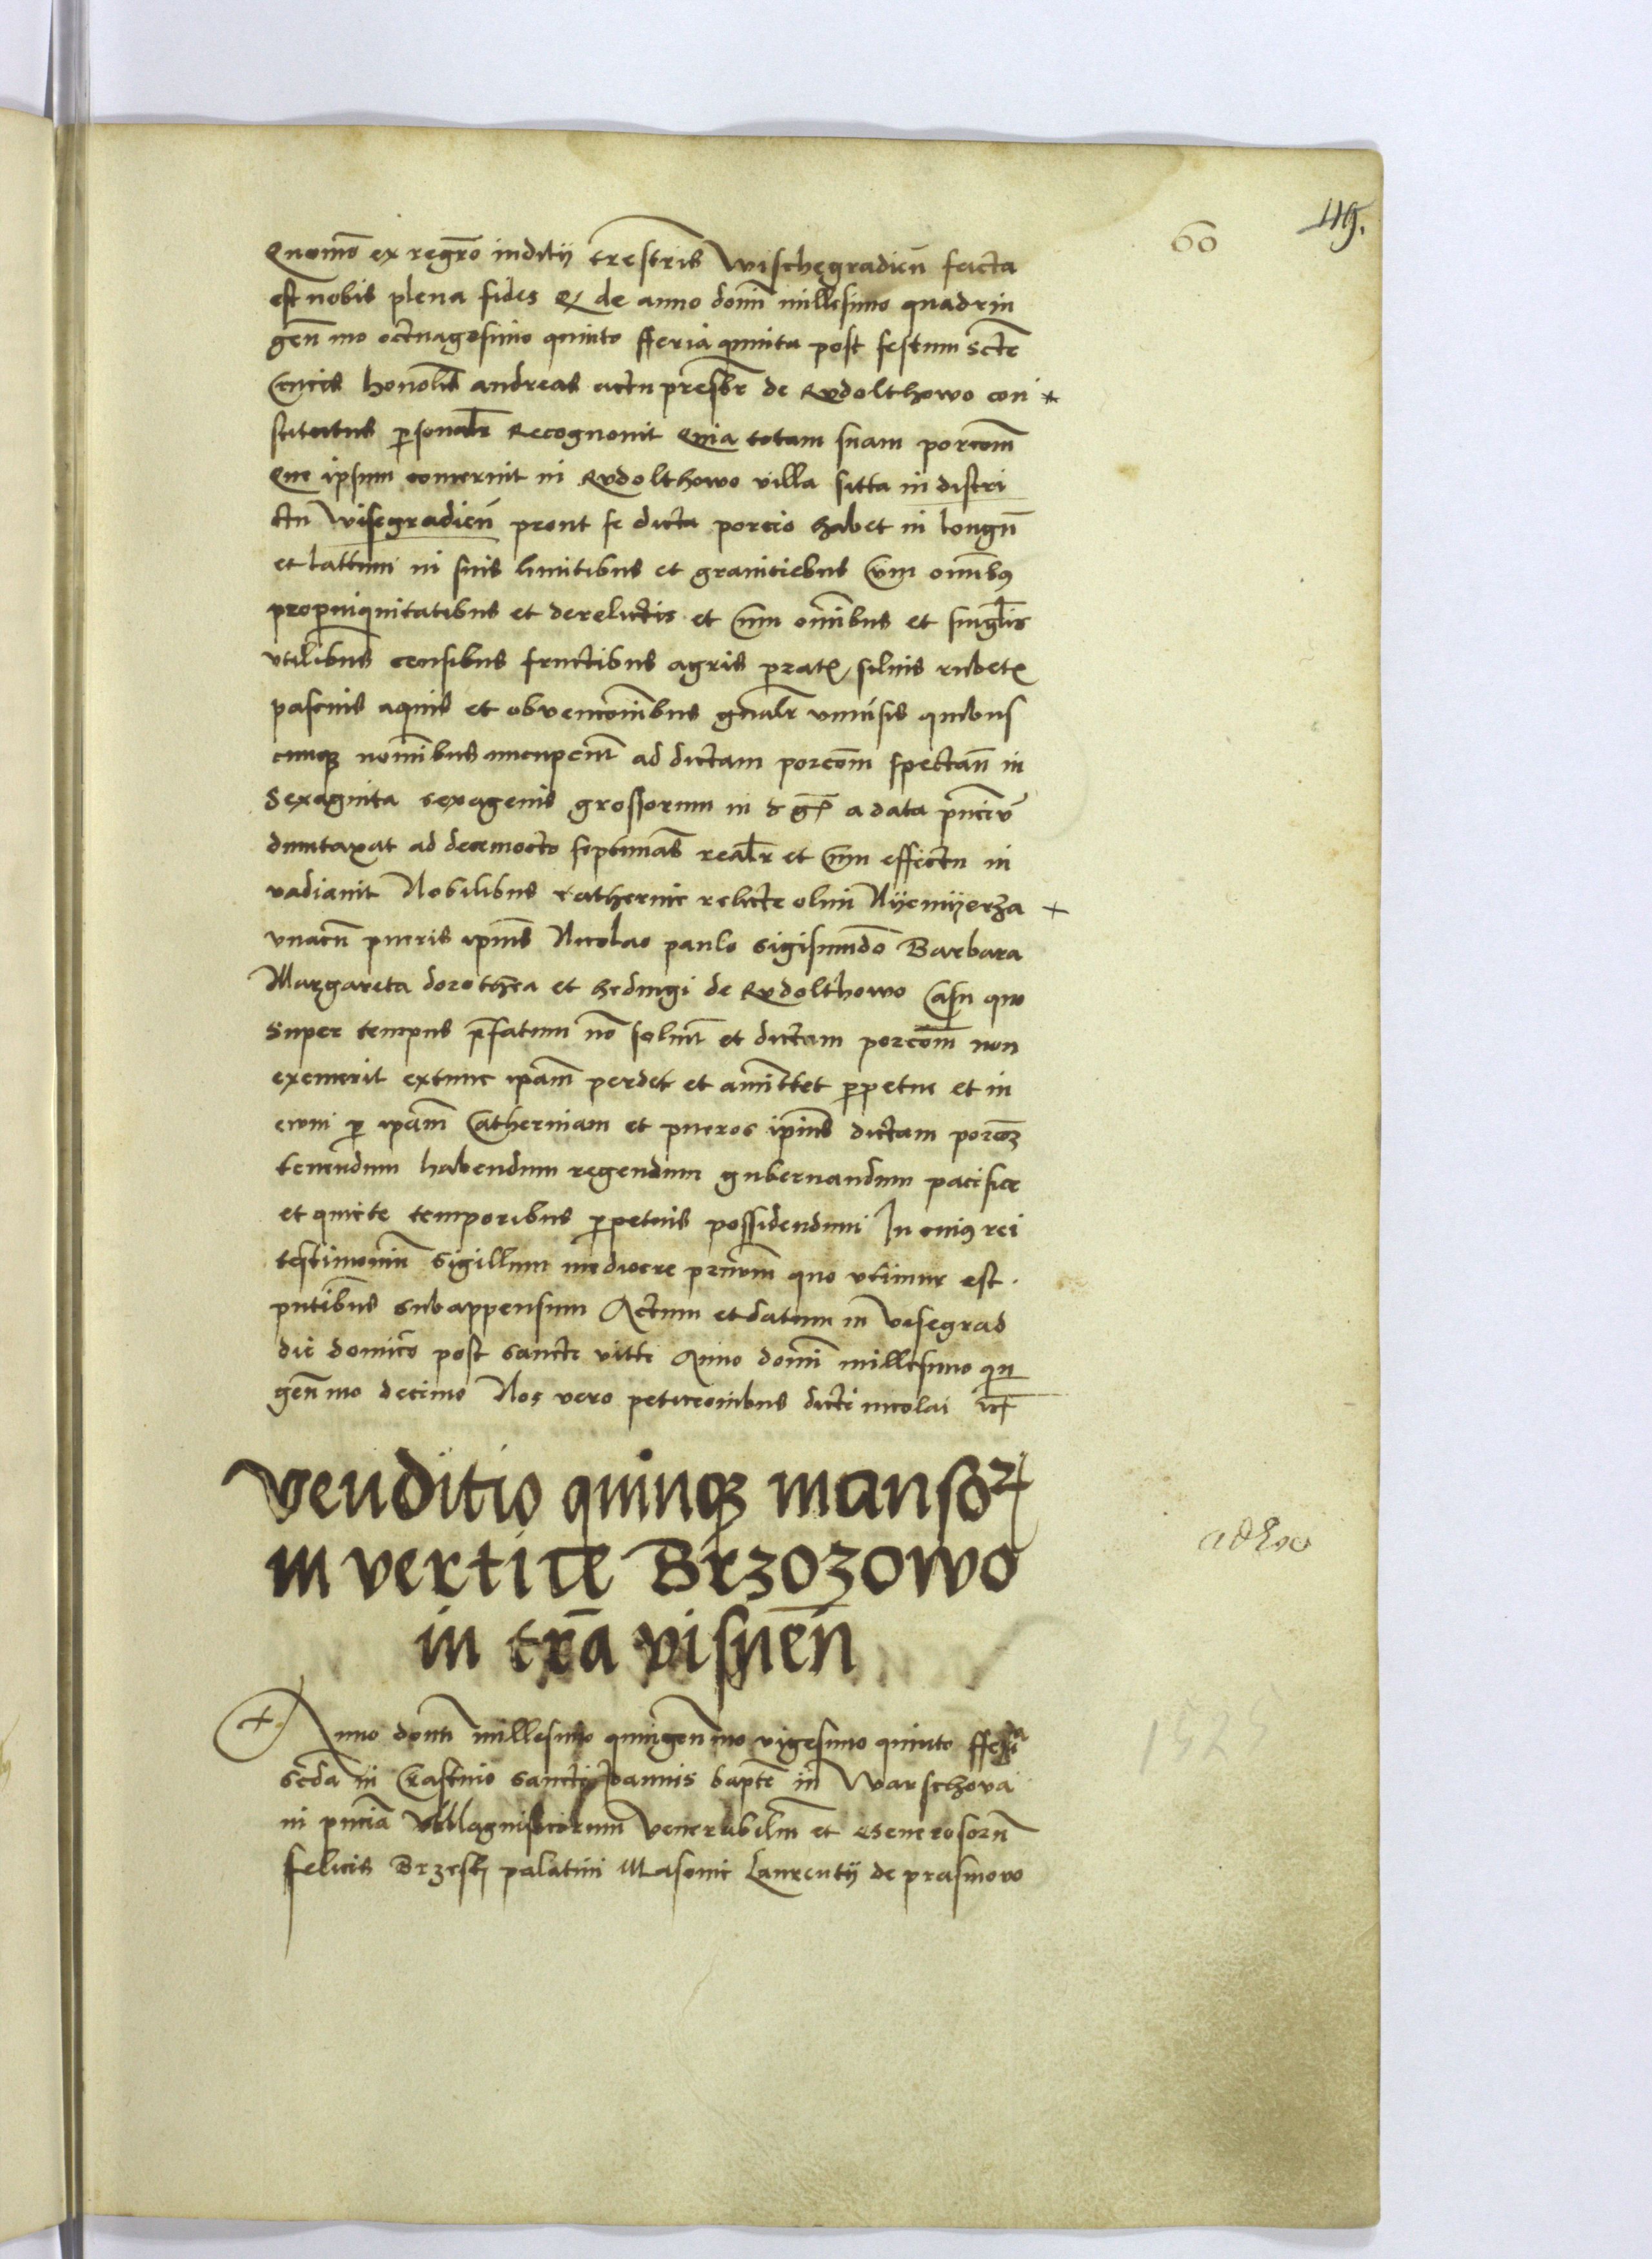 60
119.
Quomo ex regro inditij trestris Wischegradien facta
est nobis plena fides Q de anno domi millesimo quadrin
gen mo octuagesimo quinto fferia quinta post festum scte
Crucis honolis andreas actu presbr de Rvdolthowo con
stitutus personalr Recognouit Quia totam suam porcom
Que ipsum concernit in Rvdolthowo villa sitta in distri
ctu Wisegradien prout se dicta porcio habet in longu
et lattum in suis limitibus et graniciebus cum omibus
propinquitatibus et derelictis et cum omibus et singlis
vtilibus censibus fructibus agris prat siluis rubet
pascuis aquis et obvencoibus gnalr vniusis quibus
cunque nomibus nuncupent ad dictam porcom spectan in
Sexaginta sexagenis grossorum in d g a data pnciu
dumtaxat ad decemocto septimas realr et cum effectu in
vadiauit Nobilibus katherine relicte olim Nyemyerza
vnacu pueris ipius Nicolao paulo sigismudo Barbara
Margareta dorothea et heduigi de Rvdolthowo Casu quo
super tempus pfatum no soluit et dictam porcom non
exemerit extunc ipam perdet et amittet perpetue et in
ewm per ipam Catherinam et pueros ipius dictam porco
tenendum habendum regendum gubernandum pacifice
et quiete temporibus perpetuis possidendum In cuius rei
testimoniu sigillum mediocre prnum quo vtimur est
pntibus subappensum Actum et datum in Visegrad
die domico post sancte vitti Anno domi millesimo quin
gen mo decimo Nos vero peticionibus dicti nicolai etc
Venditio quinque mansor
in vertice Brzozowo
in tra visnen
adhoc
Anno domi millesimo quingen mo vigesimo quinto fferia
scda in Crastino sancti Joannis bapte in Warschova
in pncia Magnificorum Venerabilm et Generosoru
felicis Brzesky palatini Masouie Laurentij de prasmowo
1525